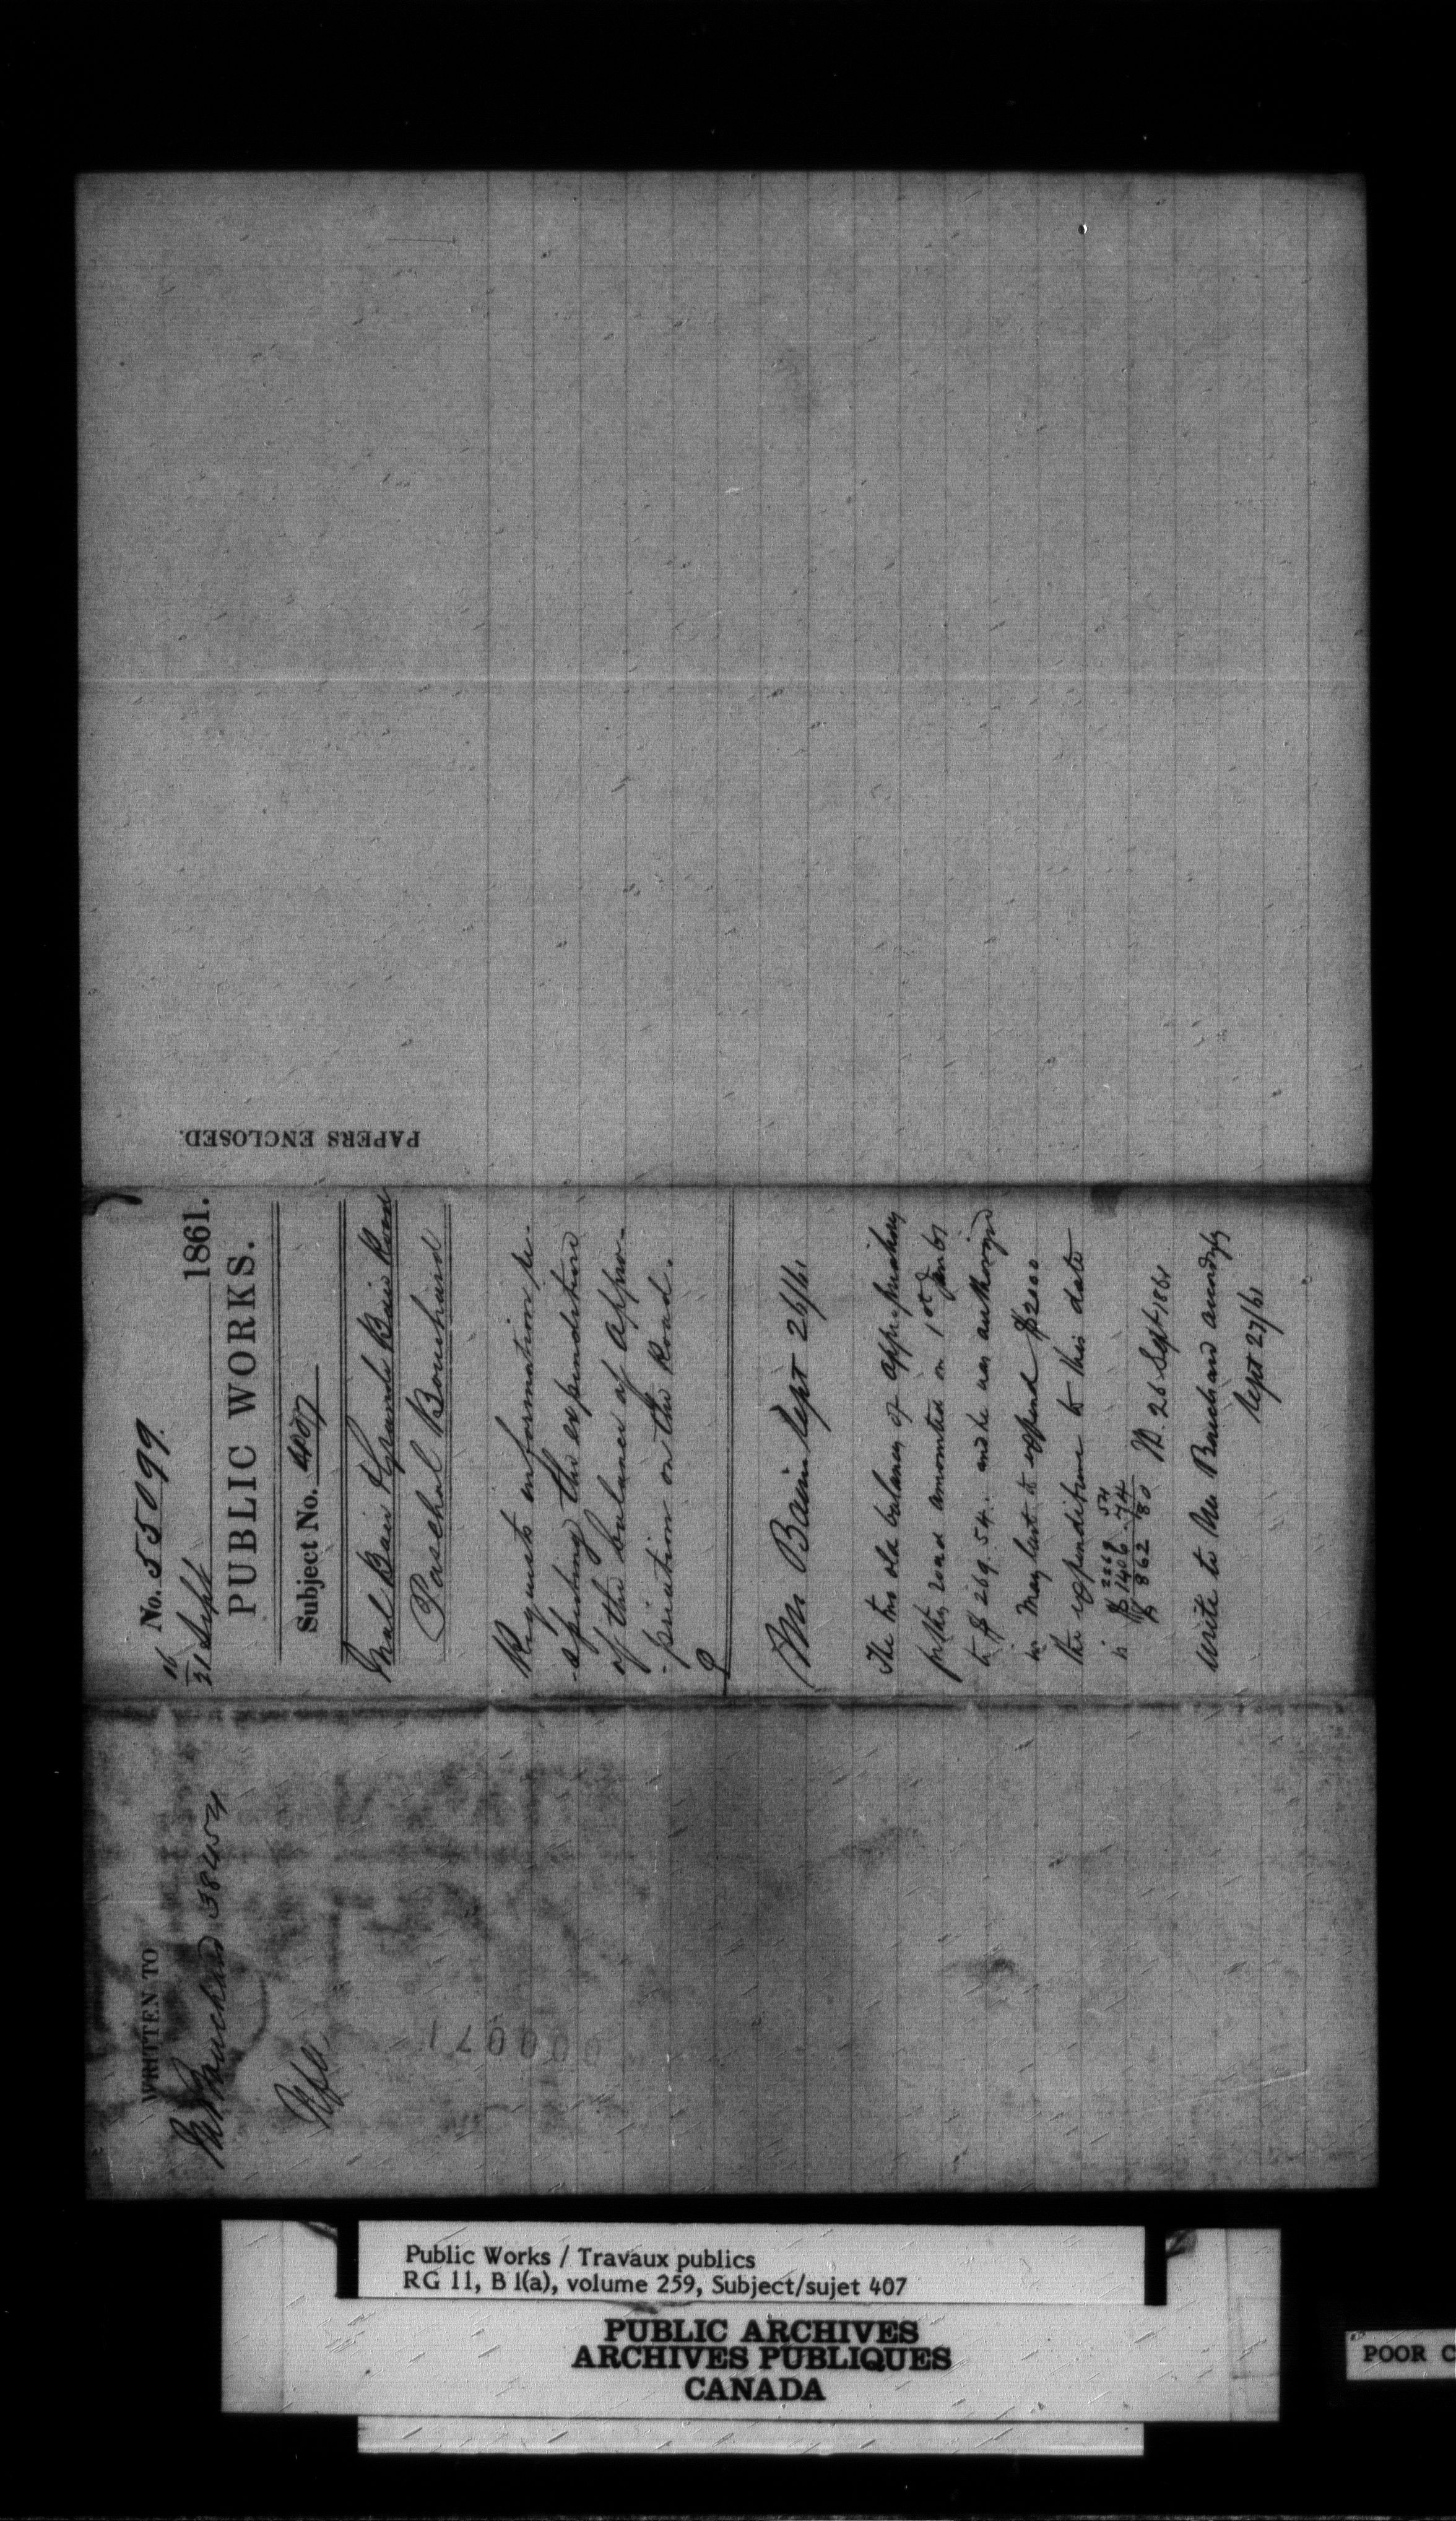 PAPERS ENCLOSED.
No. 55099.
16/21 Sept 1861.
PUBLIC WORKS.
Subject No. 407
Mal Baie & Grande Baie Road
Paschal Bouchard
Requests information re-
-specting the expenditure
of the balance of appro-
-priation on the Road.
Mr Bain Sept 26/61
The two old balances of appropriations
for this road amounted on 1st Jan 61
to $ 269.54. and he was authorized
in May last to expend $2000
the expenditure to this date
is $ 2269 54
$ 1406.74
$ 862 80
26 Sept 1861
Write to Mr Bouchard accordingly
Sept 27/61
WRITTEN TO
Mr Bouchard 38454
000071
Public Works / Travaux publics
RG 11, B 1(a), volume 259, Subject/sujet 407
PUBLIC ARCHIVES
ARCHIVES PUBLIQUES
CANADA
POOR C